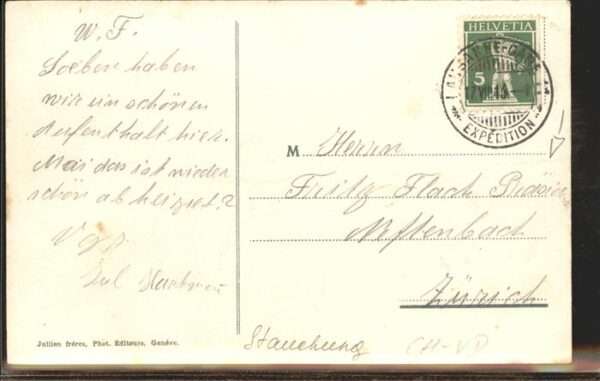 W. F.
Soeben haben
wir ein schönen
Aufenthalt hier.
Mai das ist wieder
schön abheizet?
HELVETIA
5
LAUSANNE-GARE
EXPÉDITION
M Herrn
Fritz Flach
Neftenbach
Zürich
Jullien frères, Phot. Editeurs, Genève.
Stauchung
CH-VD